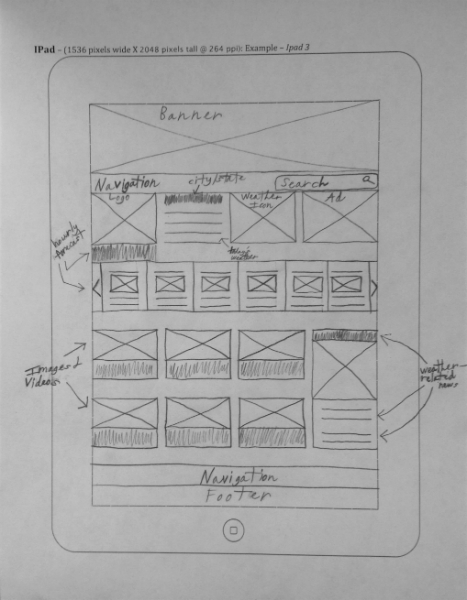 IPad – (1536 pixels wide X 2048 pixels tall @ 264 ppi): Example – Ipad 3
Banner
Navigation
city/state
Search
Logo
Weather Icon
Ad
hourly forecast
today's weather
Images / Videos
weather-related news
Navigation
Footer